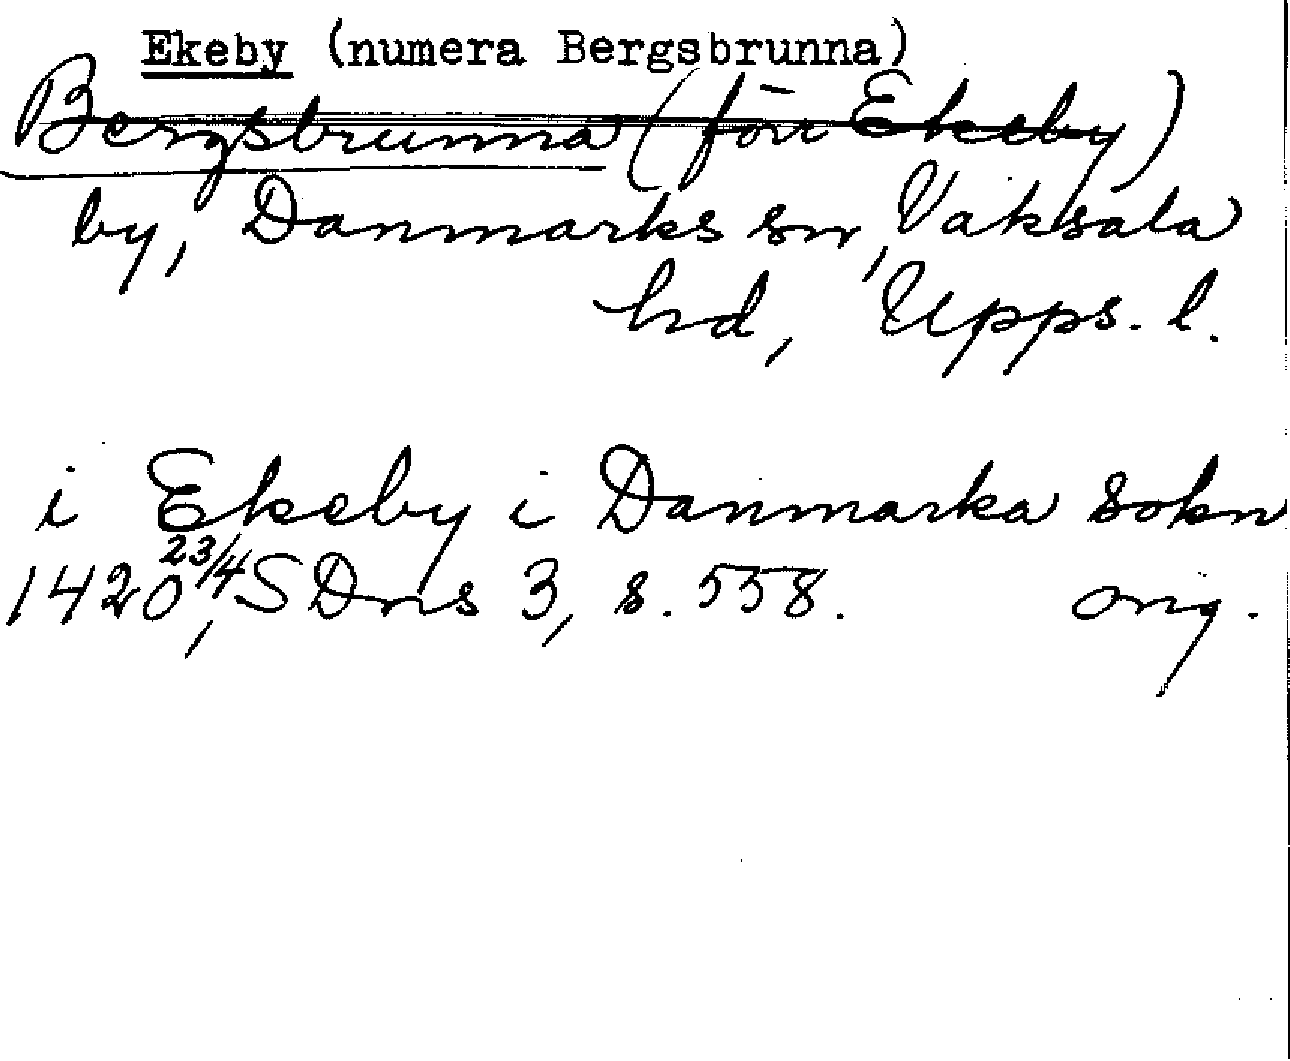 Ekeby (numera Bergsbrunna)
Bergsbrunna (förr Ekeby)
by, Danmarks sn, Vaksala
hd, Upps. l.
i Ekeby i Danmarka sokn
1420 23/4, SDns 3, s. 558. orig.